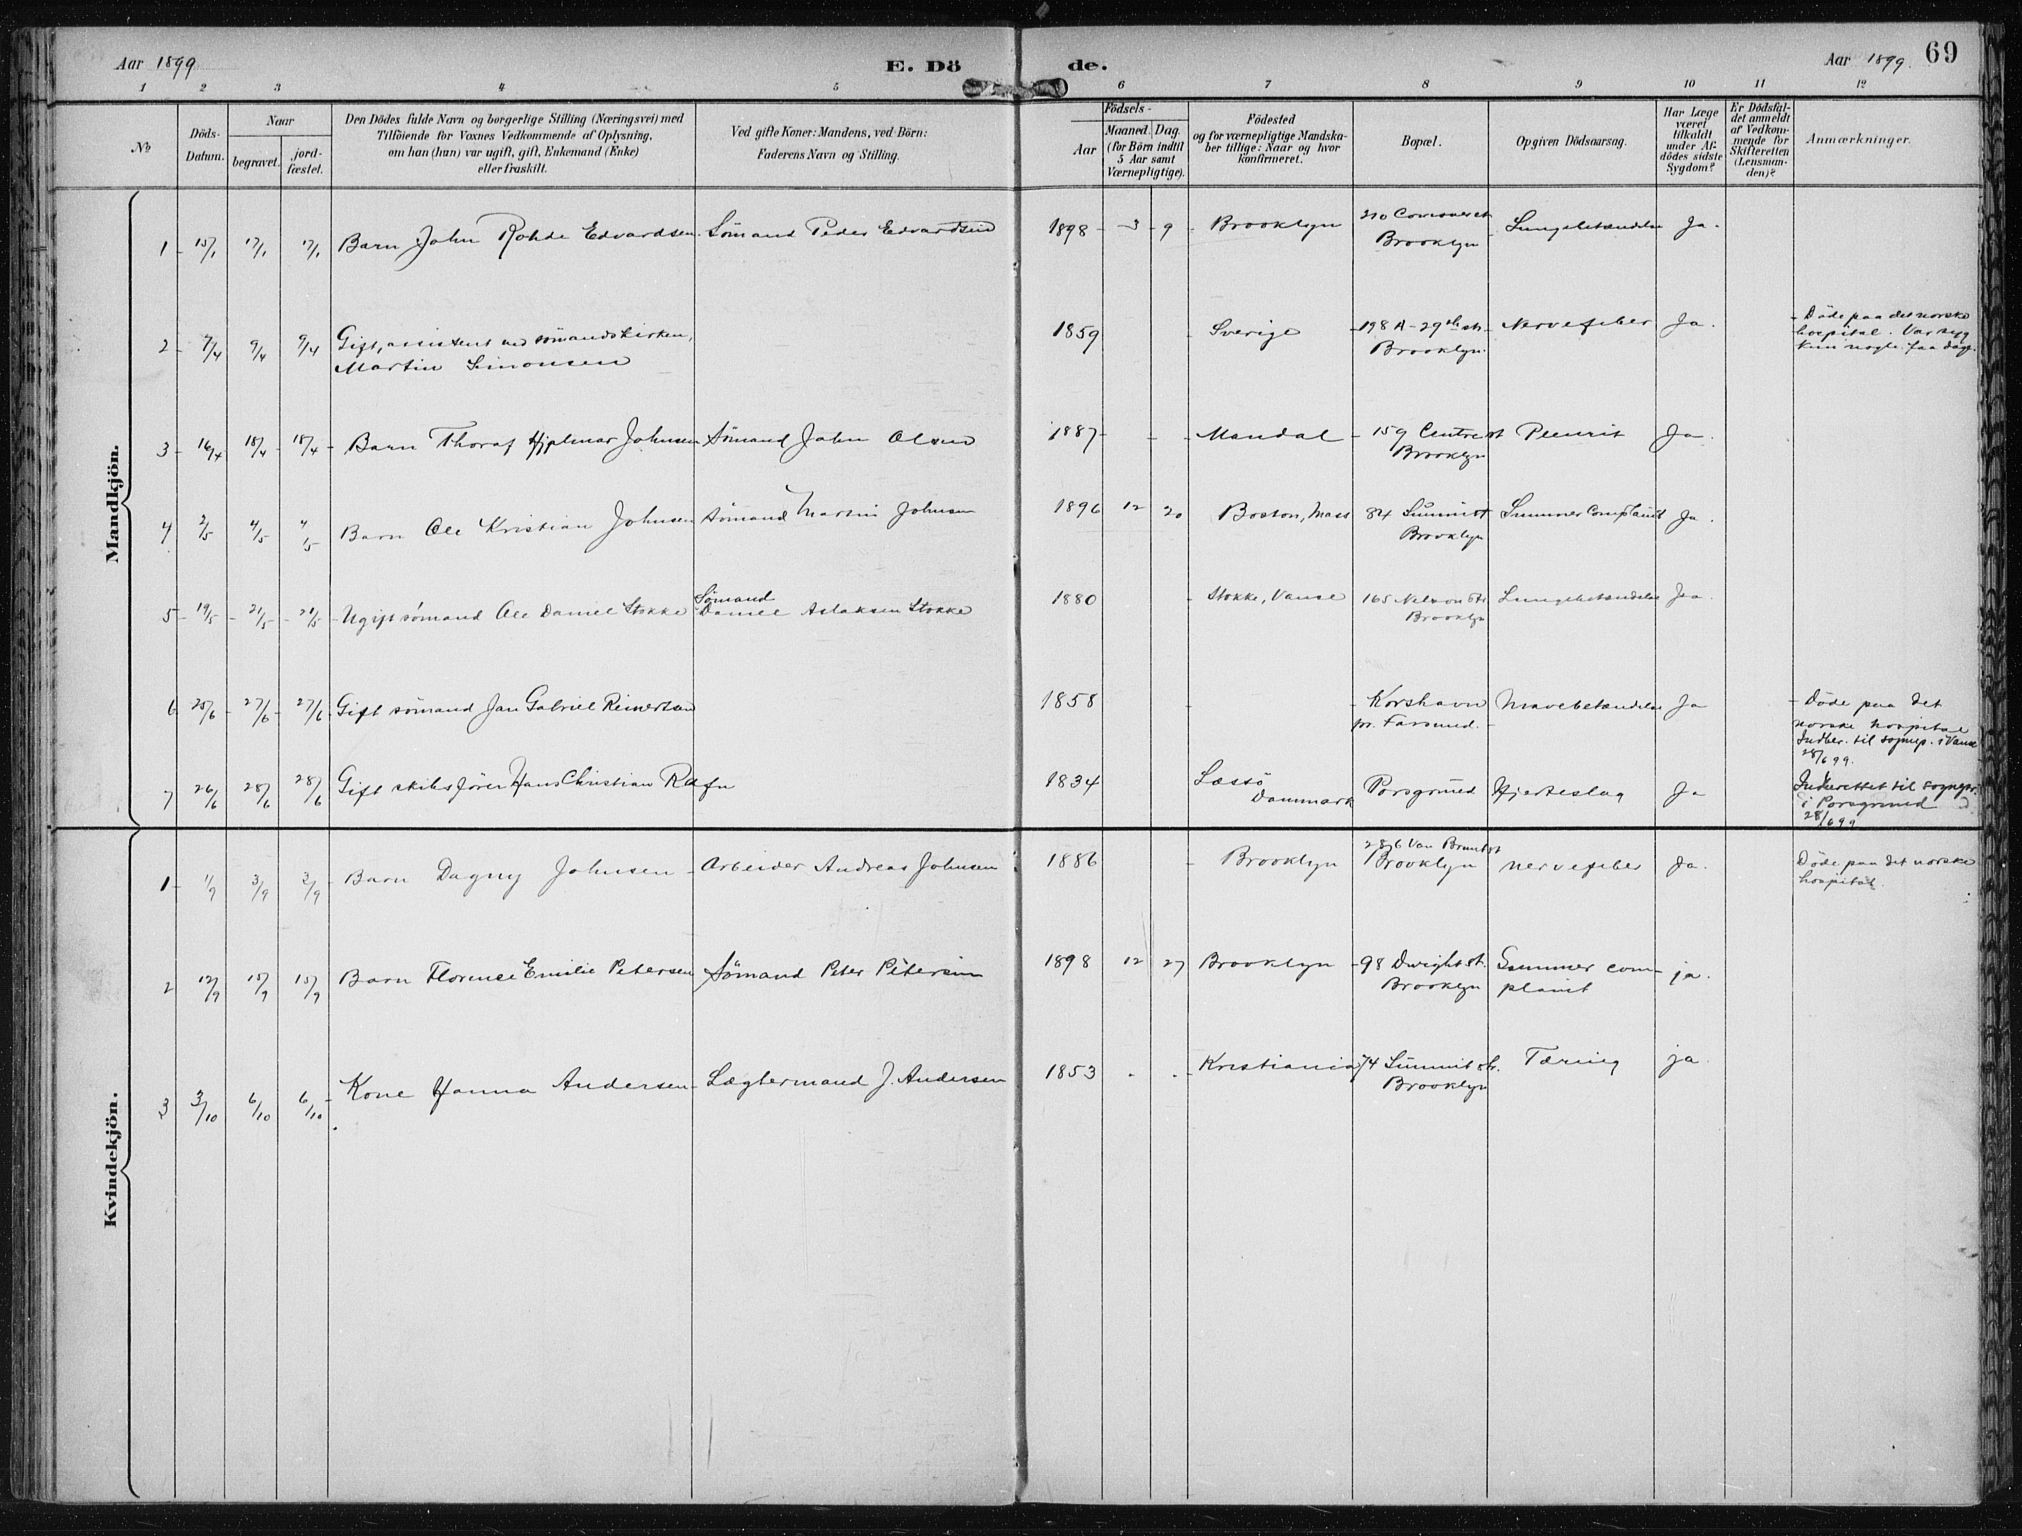 Aar 1899
E. Dö de.
Aar 1899.
69
1 2 3 4 5 6 7 8 9 10 11 12
No
Döds-
Datum.
Naar
begravet.
jord-
fæstet.
Den Dödes fulde Navn og borgerlige Stilling (Næringsvei) med
Tilföiende for Voxnes Vedkommende af Oplysning,
om han (hun) var ugift, gift, Enkemand (Enke)
eller fraskilt.
Ved gifte Koner: Mandens, ved Börn:
Faderens Navn og Stilling.
Födsels-
Aar
Maaned. Dag.
(for Börn indtil
5 Aar samt
Værnepligtige).
Födested
og for værnepligtige Mandska-
ber tillige: Naar og hvor
konfirmeret.
Bopæl.
Opgiven Dödsaarsag.
Har Læge
været
tilkaldt
under Af-
dödes sidste
Sygdom?
Er Dödsfal-
det anmeldt
af Vedkom-
mende for
Skifteretten
(Lensman-
den)?
Anmærkninger.
Mandkjön.
1 15/1 17/1 17/1 Barn John Rohde Edvardsen Sømand Peder Edvardsen 1898 3 9 Brooklyn 210 Conover st Lungebetændelse Ja.
Brooklyn
2 7/4 9/4 9/4 Gift, assistent ved sømandskirken, 1859 Sverige 198 A-29th st. Nervefeber Ja. Døde paa det norske
Martin Simonsen Brooklyn. hospital. Var syg
kun nogle faa dage.
3 16/4 18/4 18/4 Barn Thoraf Hjalmar Johnsen Sømand John Olsen 1887 Mandal 159 Centre st Pleurit Ja.
Brooklyn
4 2/5 4/5 4/5 Barn Ole Kristian Johnsen Sømand Martin Johnsen 1896 12 20 Boston, Mass 84 Summit st Summer Complaint Ja.
Brooklyn
5 19/5 21/5 21/5 Ugift sømand Ole Daniel Stokke Sømand 1880 Stokke, Vanse 165 Nelson st. Lungebetændelse Ja.
Daniel Aslaksen Stokke Brooklyn
6 25/6 27/6 27/6 Gift sømand Jan Gabriel Reinertsen 1858 Korshavn Mavebetændelse Ja Døde paa det
pr. Farsund. norske hospital
Indber. til sognep. i Vanse
28/6 99.
7 26/6 28/6 28/6 Gift skibsfører Hans Christian Rafn 1834 Læssö Porsgrund Hjerteslag Ja Inderettet til sognepr.
Danmark i Porsgrund
28/6 99
Kvindekjön.
1 1/9 3/9 3/9 Barn Dagny Johnsen Arbeider Andreas Johnsen 1886 Brooklyn 286 Van Brunt st Nervefeber Ja. Døde paa det norske
Brooklyn hospital.
2 12/9 15/9 15/9 Barn Florence Emilie Petersen Sømand Peter Petersen 1898 12 27 Brooklyn 98 Dwight st. Summer com- ja.
Brooklyn plaint
3 3/10 6/10 6/10 Kone Hanna Andersen Lægtermand J. Andersen 1853 Kristiania 74 Summit st. Tæring ja.
Brooklyn